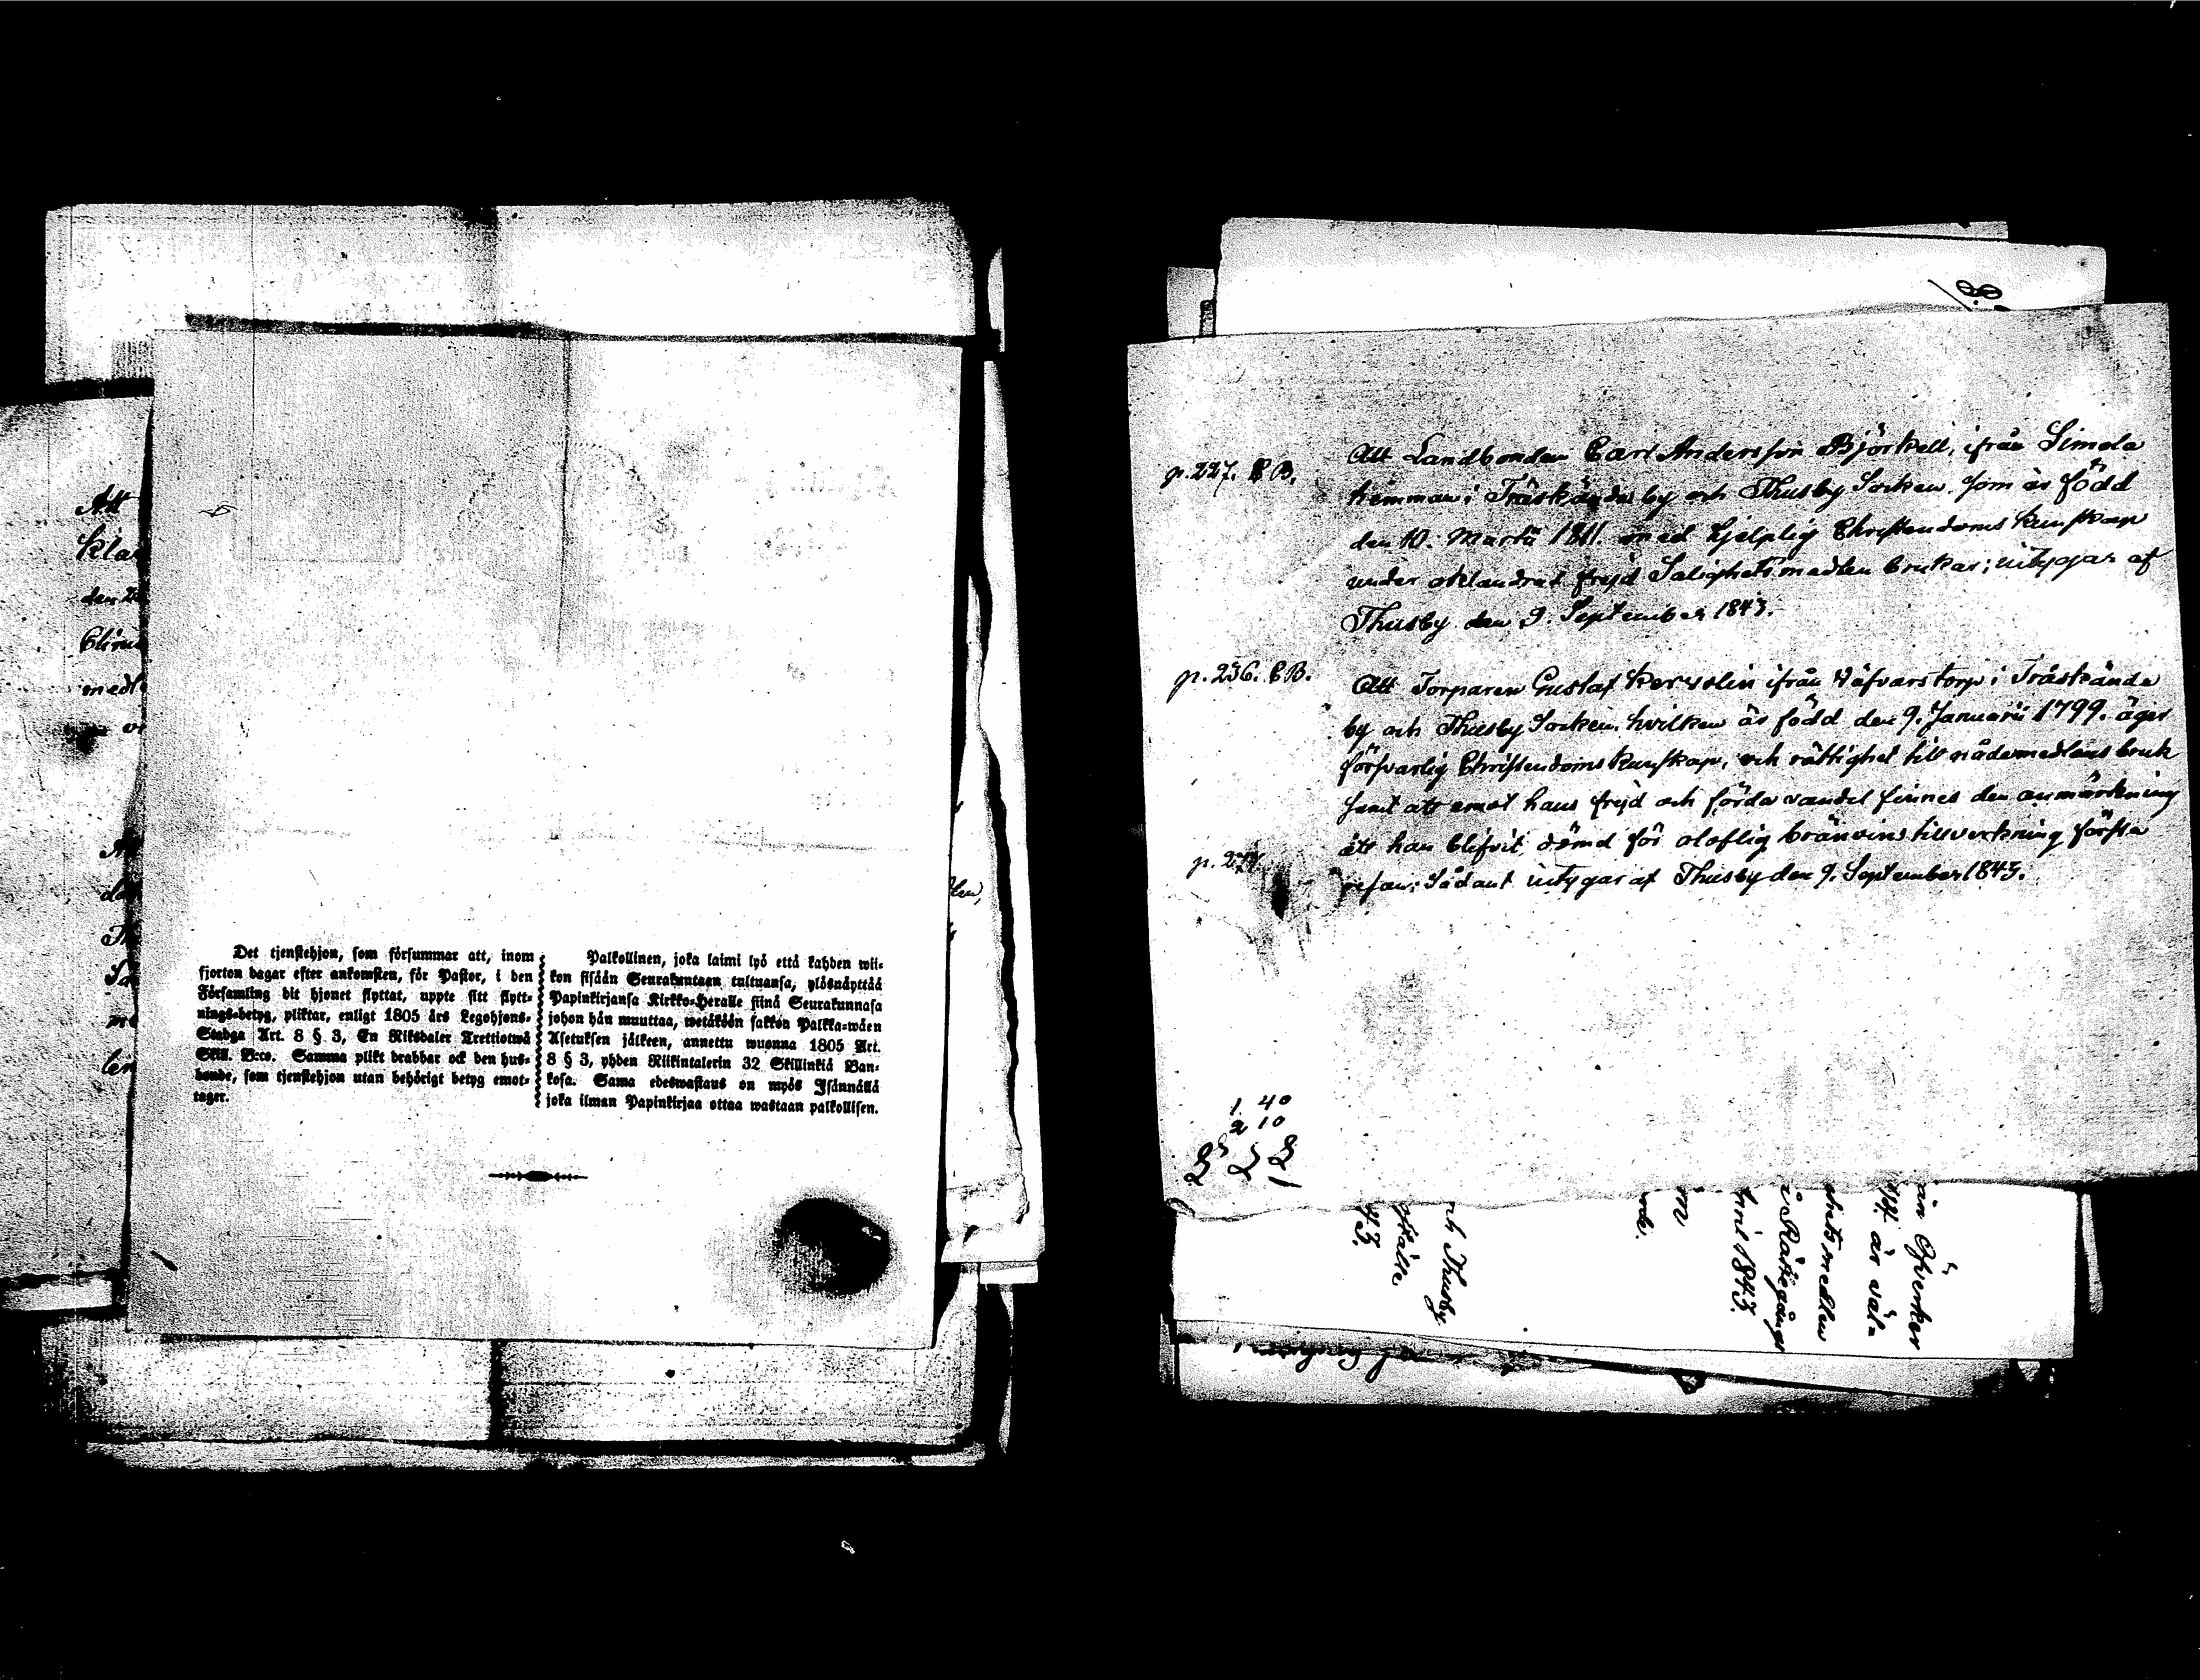 Att
kla
den 2
medl
Det tjenstehjon, som försummar att, inom
fjorton dagar efter ankomsten, för Pastor, i den
Församling dit hjonet flyttat, uppte sitt flytt-
nings-betyg, pliktar, enligt 1805 års Legohjons-
Stadga Art. 8 § 3, En Riksdaler Trettiotwå
Skill. B:co. Samma plikt drabbar ock den hus-
bonde, som tjenstehjon utan behörigt betyg emot-
tager.
Palkollinen, joka laimi lyö että kahden wii-
kon sisään Seurakuntaan tultuansa, ylösnäyttää
Papinkirjansa Kirkko-Heralle siinä Seurakunnasa
johon hän muuttaa, wetäköön sakkon Palkka-wäen
Asetuksen jälkeen, annettu wuonna 1805 Art.
8 § 3, yhden Riikintalerin 32 Skillinkiä Ban-
kosa. Sama edeswastaus on myös Isännällä
joka ilman Papinkirjaa ottaa wastaan palkollisen.
p. 227. C B.
Att Landbonden Carl Andersson Björkell, ifrån Simola
hemman i Träskända by och Thusby Socken, som är född
den 10. Martii 1811. med hjelplig Christendoms kunskap
under oklandrad frejd Salighetsmedlen brukar; intygar af
Thusby den 9. September 1843.
p. 236. C B.
Att Torparen Gustaf ifrån Wäfvarstorp i Träskända
by och Thusby Socken, hvilken är född den 9. Januarii 1799. äger
försvarlig Christendoms kunskap, och rättighet till nådemedlens bruk
samt att emot hans frejd och förda vandel finnes den anmärkning
att han blifvit dömd för oloflig bränvins tillverkning första
resan; Sådant intygar af Thusby den 9. September 1843.
1 40
2 10
43.
ch Thusby
i Rättegångs
1843.